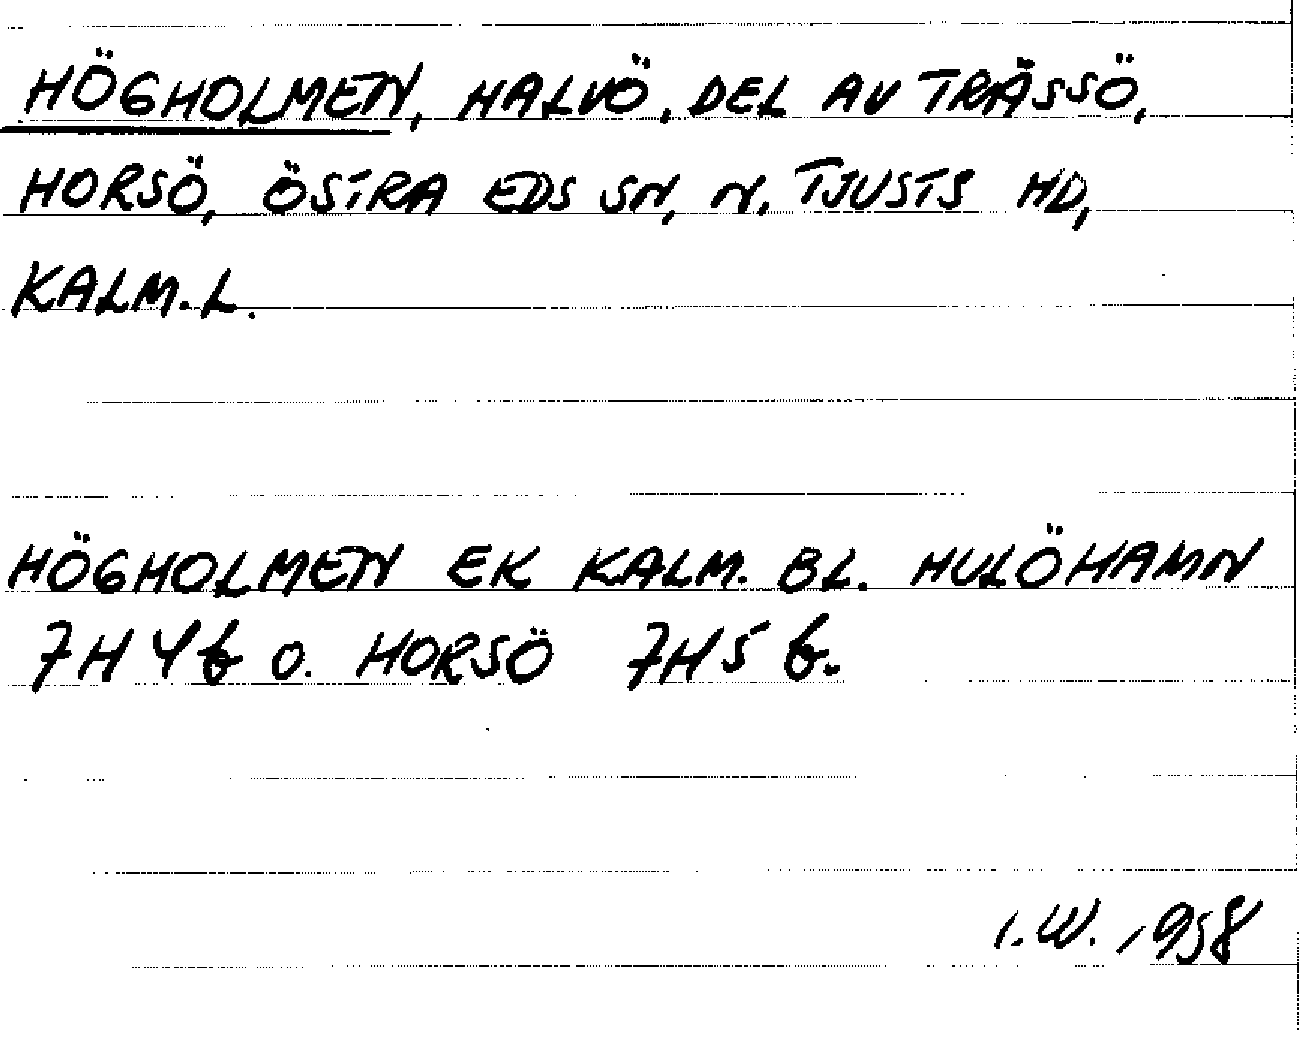 HÖGHOLMEN, HALVÖ, DEL AV TRÄSSÖ,
HORSÖ, ÖSTRA EDS SN, N. TJUSTS HD,
KALM. L.
HÖGHOLMEN EK KALM. BL. HULÖHAMN
7H 4b O. HORSÖ 7H 5 b.
I. W. 1958